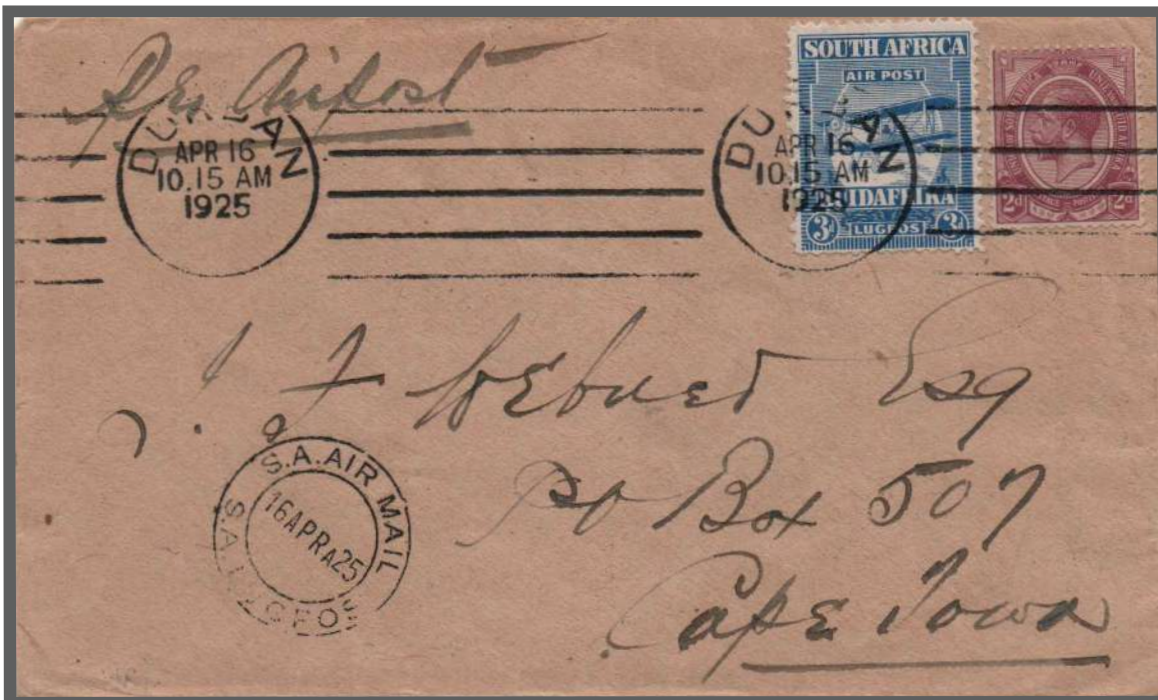 Per Airpost
DURBAN
APR 16
10.15 AM
1925
DURBAN
APR 16
10.15 AM
1925
SOUTH AFRICA
AIR POST
SUIDAFRIKA
3d LUGPOS 3d
2d 2d
Esq
PO Box 507
Cape Town
S.A. AIR MAIL
16 APR A 25
S.A. LUGPOS